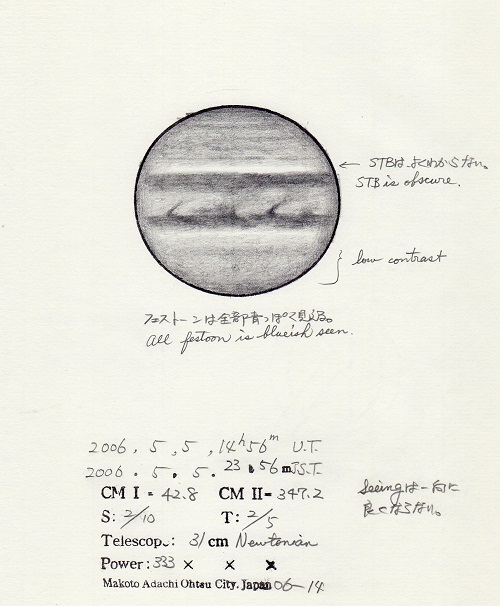 ← STBは よくわからない。
STB is obscure.
low contrast
フェストーンは全部青っぽく見える。
All festoon is blueish seen.
2006 . 5 . 5 , 14h56m U.T.
2006 . 5 . 5 . 23 . 56 m J.S.T.
CM I = 42.8 CM II= 347.2
S: 2/10 T: 2/5
Telescop.: 31 cm Newtonian
Power: 333 × × ×
Makoto Adachi Ohtsu City. Japan 06-14
Seeingは一向に
良くならない。